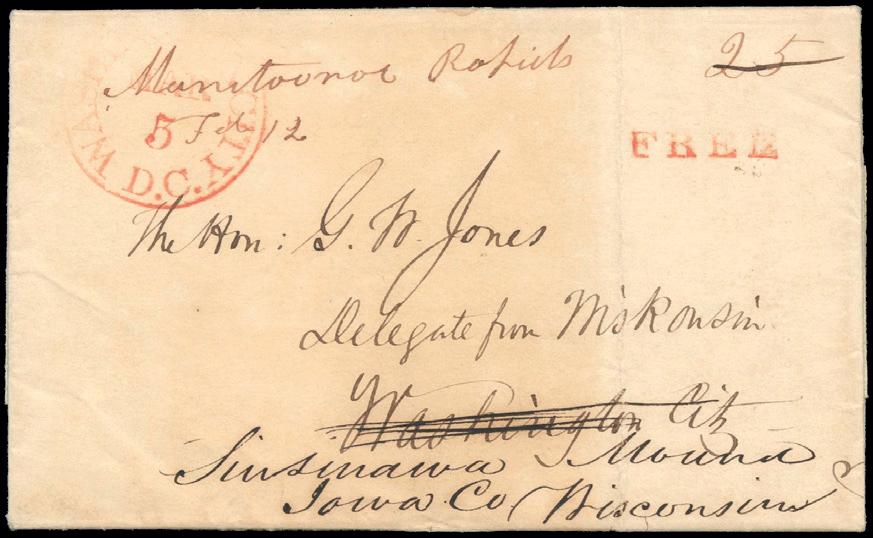 Manitowoc Rapids
25
WASHINGTON CITY D.C.
MAR
5
Feb 12
FREE
The Hon: G. W. Jones
Delegate from Wiskonsin
Washington City
Sinsinawa Mound
Iowa Co, Wisconsin